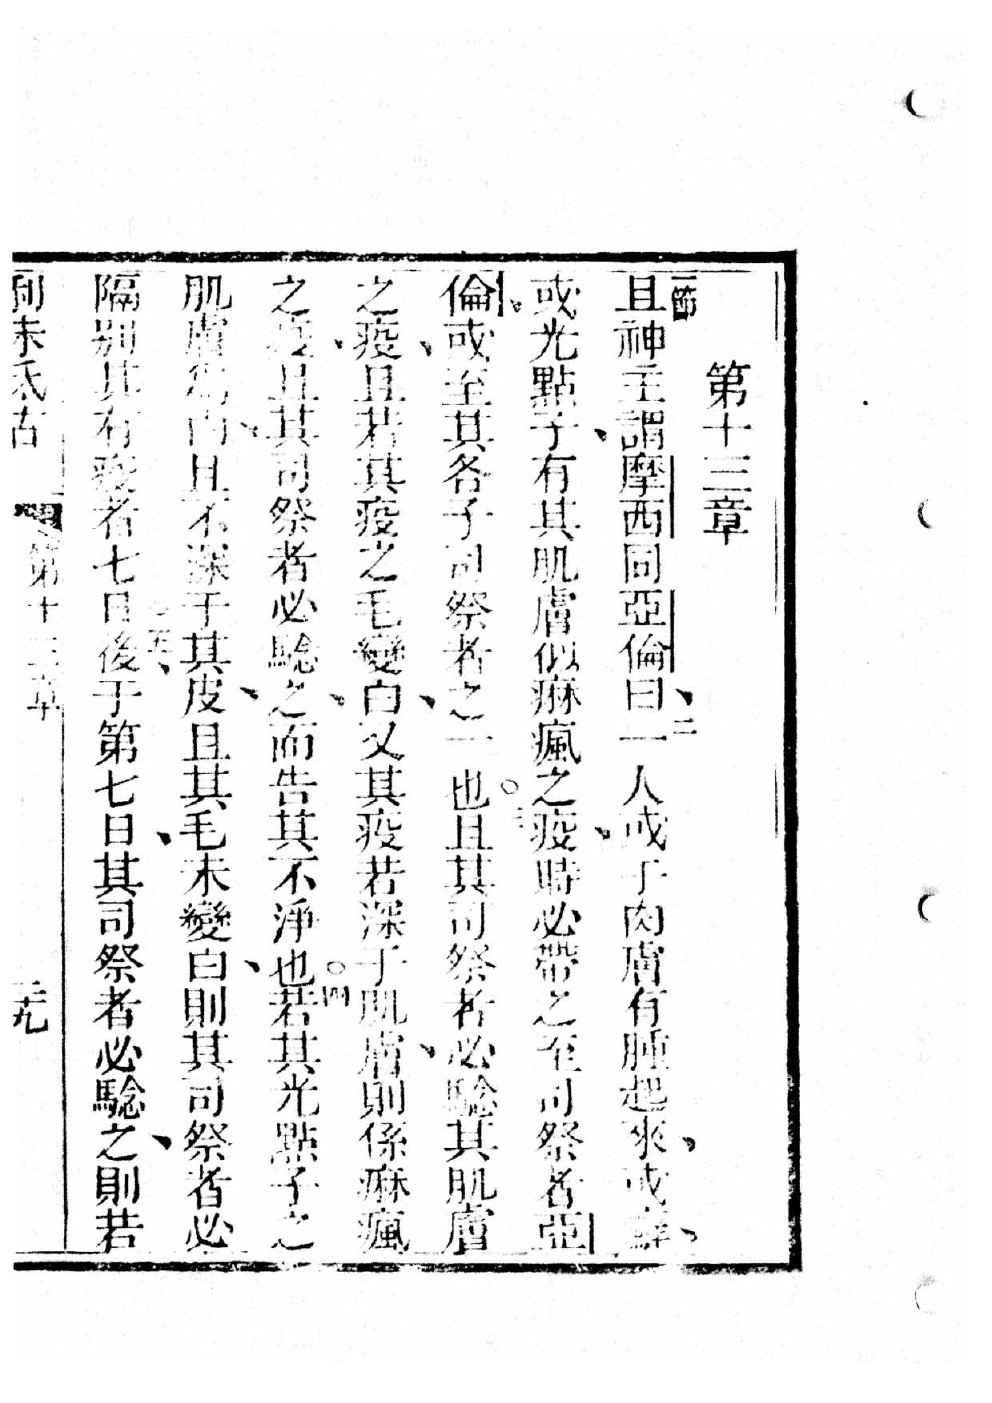 第十三章
一節 且神主謂摩西同亞倫曰、二 一人或于肉膚有腫起來、或癬、
或光點子、有其肌膚似痳瘋之疫、時必帶之至司祭者亞
倫、或至其各子司祭者之一也。三 且其司祭者必騐其肌膚
之疫、且若其疫之毛變白、又其疫若深于肌膚、則係痳瘋
之疫、且其司祭者必騐之、而告其不淨也。四 若其光點子之
肌膚為白、且不深于其皮、且其毛未變白、則其司祭者必
隔別其有疫者七日、五 後于第七日、其司祭者必騐之、則若
利未氏古 第十三章 三九